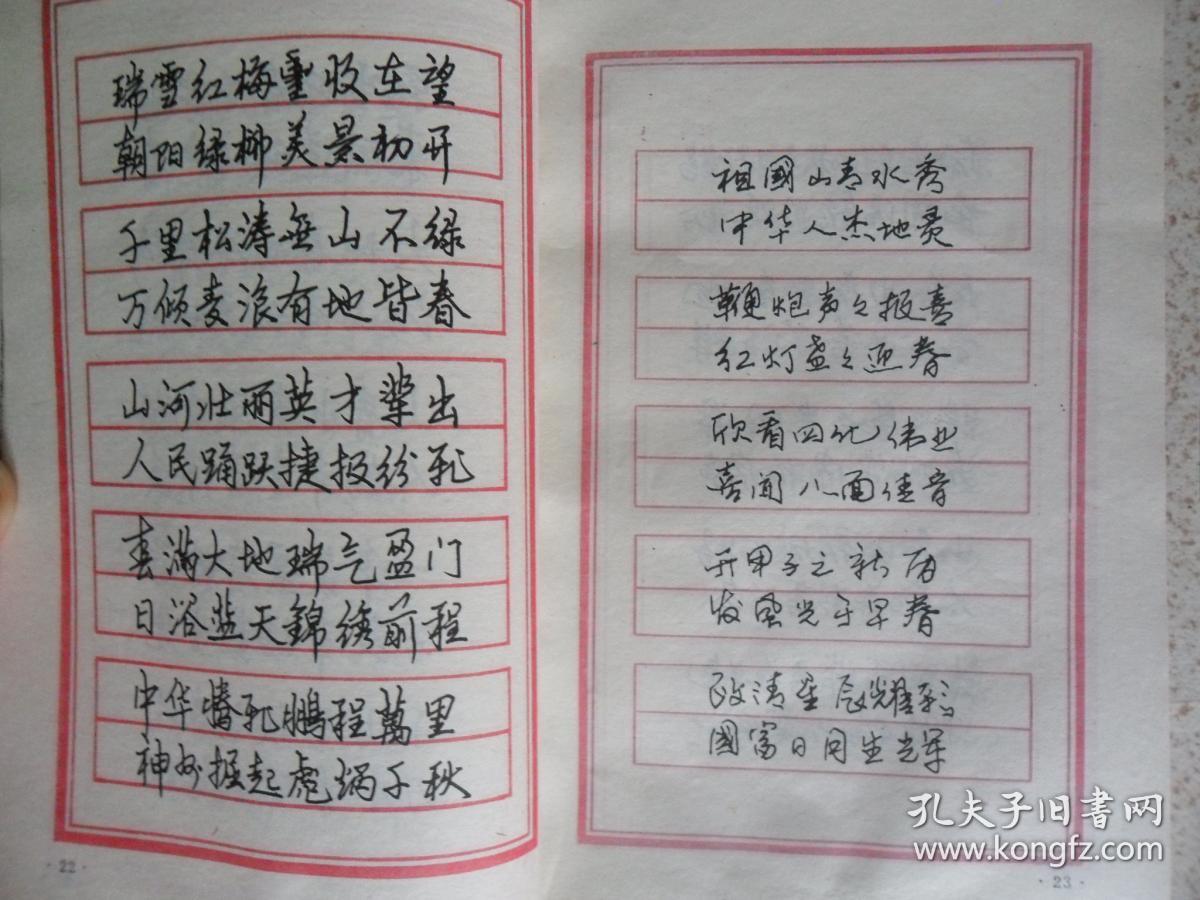 瑞雪红梅豐收在望
朝阳绿柳美景初开
千里松涛無山不绿
万倾麦浪有地皆春
山河壮丽英才辈出
人民踊跃捷报纷飞
春满大地瑞气盈门
日浴蓝天錦绣前程
中华腾飞鹏程萬里
神州掘起千秋
·22·
祖國山青水秀
中华人杰地灵
鞭炮声々报喜
红灯盏々迎春
欣看四化伟业
喜闻八面佳音
开甲子之新历
发風光于早春
政清星辰耀彩
國富日月生辉
·23·
孔夫子旧书网
www.kongfz.com